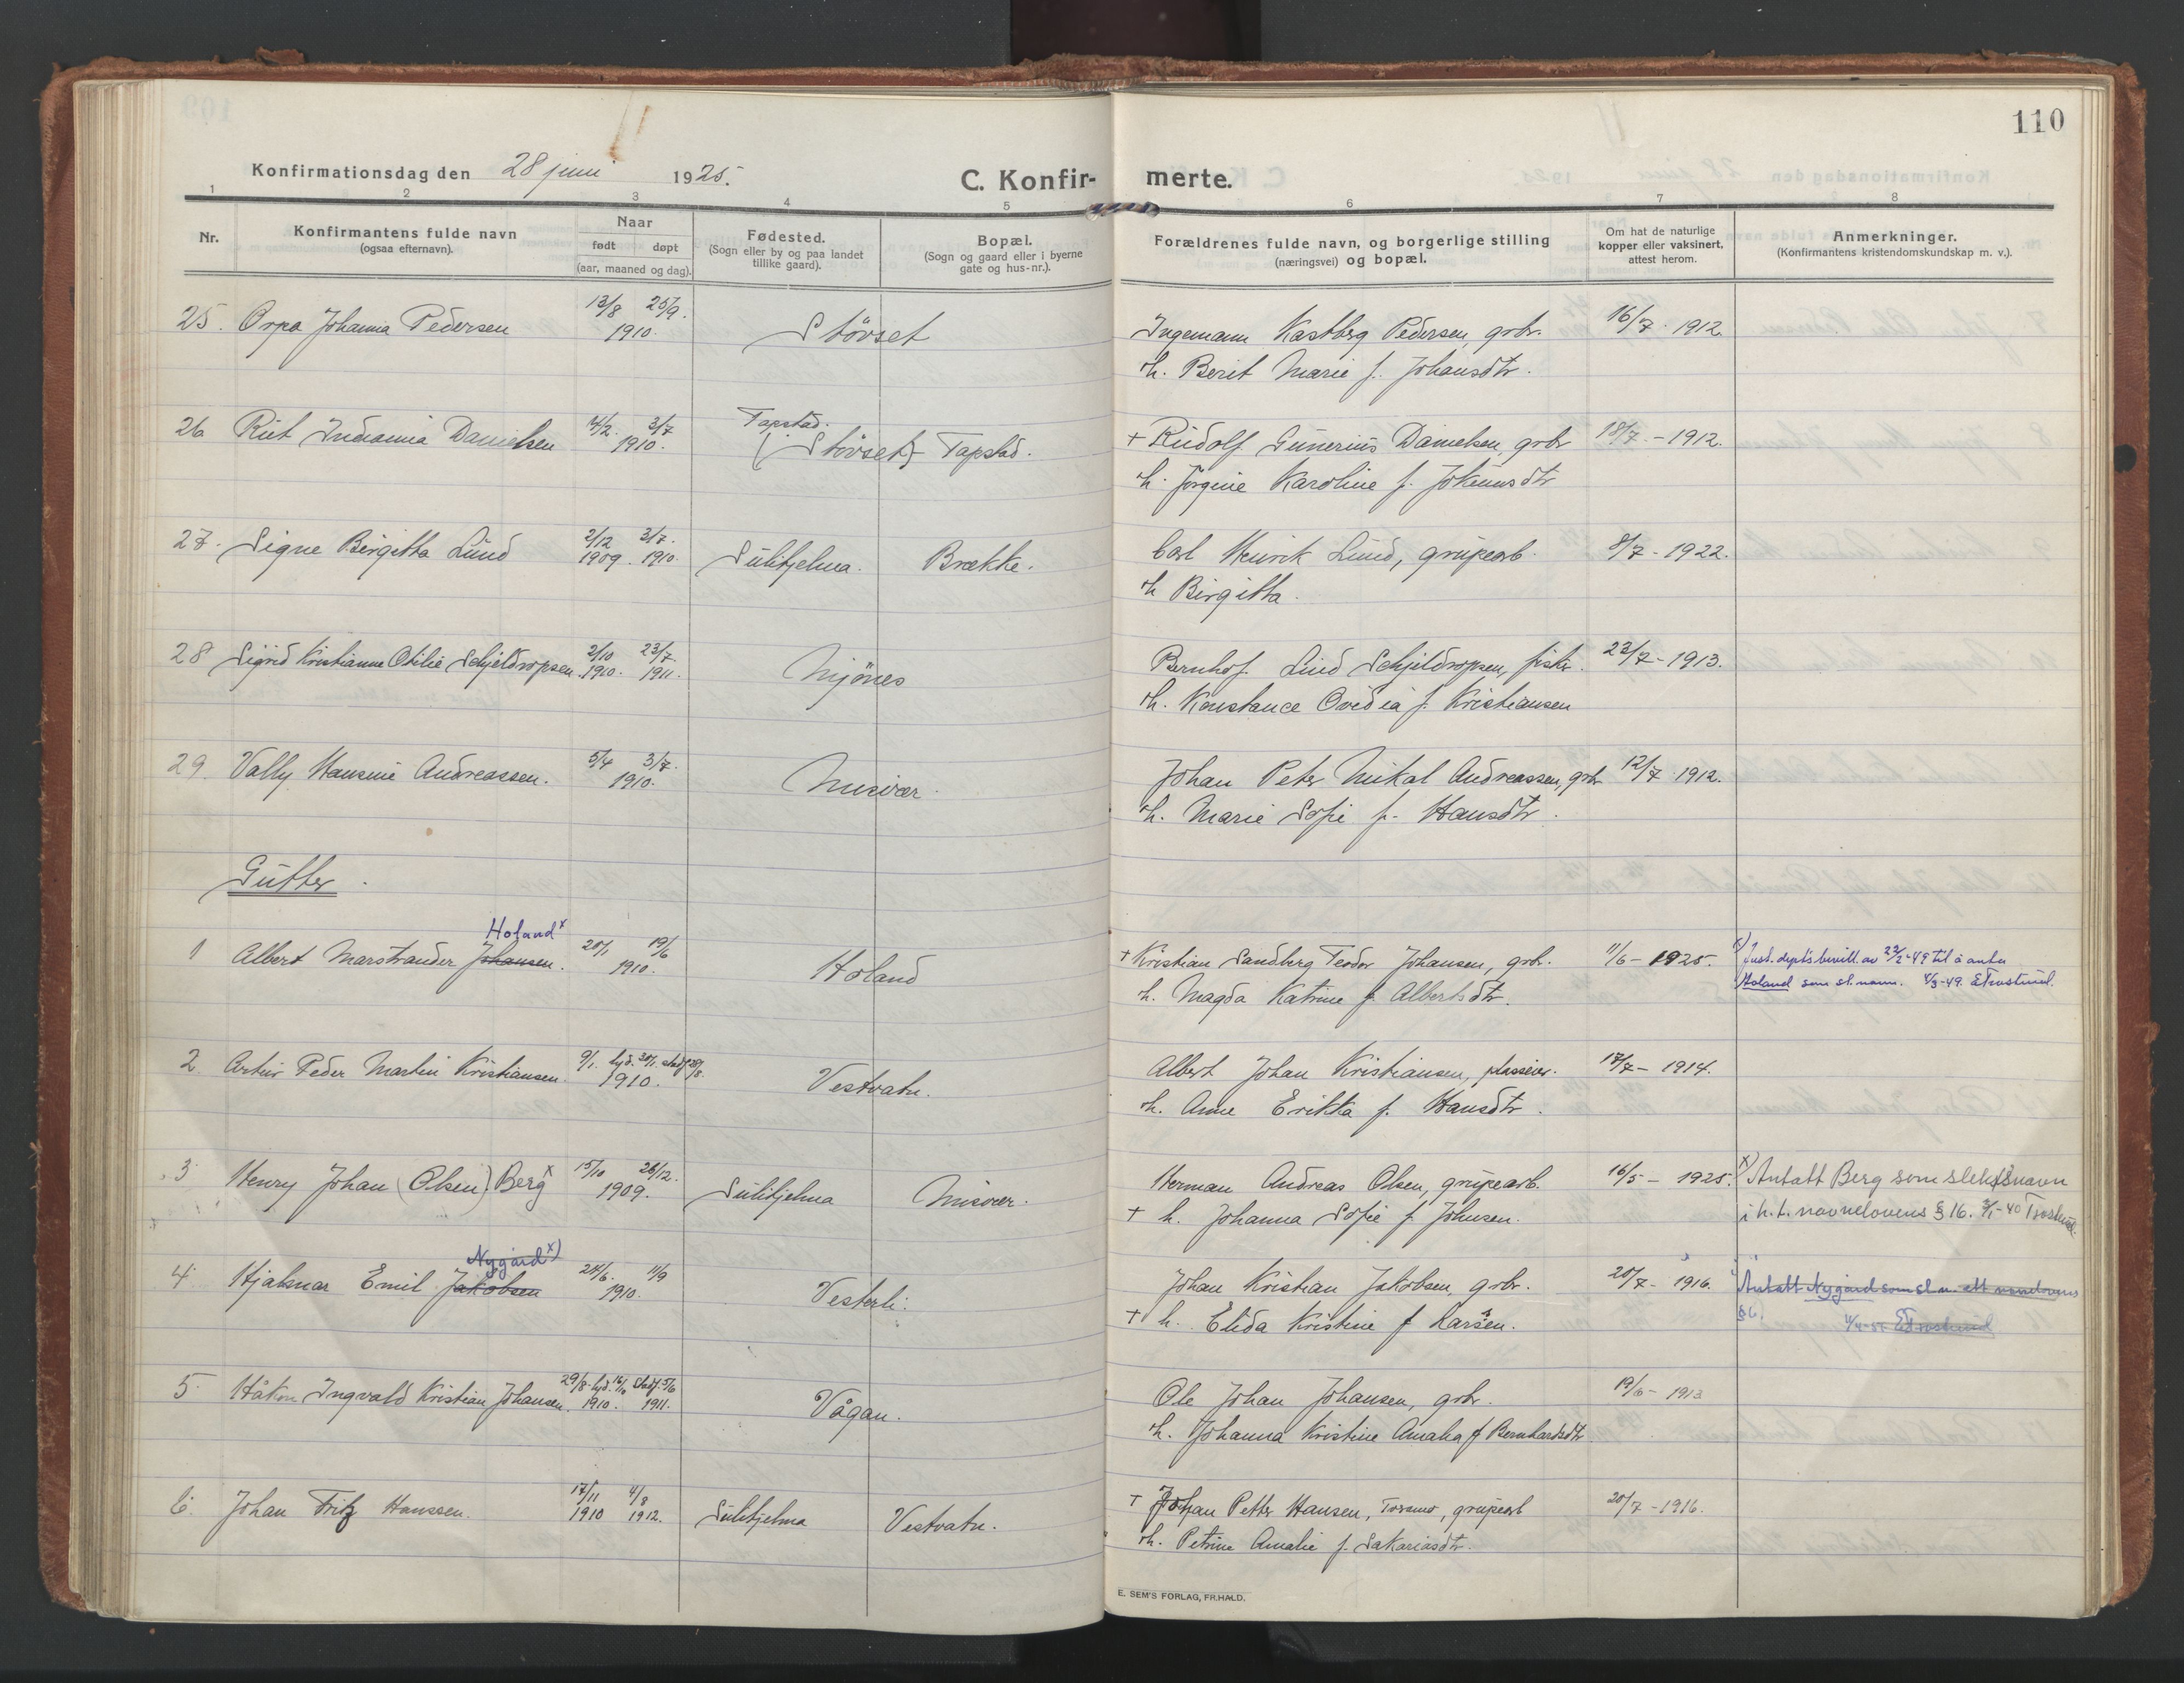 110
Konfirmationsdag den 28 juni 1925.
C. Konfir- merte.
1 2 3 4 5 6 7 8
Nr.
Konfirmantens fulde navn
(ogsaa efternavn).
Naar
født døpt
(aar, maaned og dag).
Fødested.
(Sogn eller by og paa landet
tillike gaard).
Bopæl.
(Sogn og gaard eller i byerne
gate og hus-nr.).
Forældrenes fulde navn, og borgerlige stilling
(næringsvei) og bopæl.
Om hat de naturlige
kopper eller vaksinert,
attest herom.
Anmerkninger.
(Konfirmantens kristendomskundskap m. v.).
25. Orpa Johanna Pedersen 13/8 25/9. 1910. Störset Ingemann Kastberg Pedersen, grbr. 16/7. 1912.
h. Berit Marie f. Johansdtr.
26 Rut Indiania Danielsen 14/2. 3/7 1910. Tapstad. (Störset) Tapstad. + Rudolf Gunerius Danielsen, grbr 18/7. - 1912.
h. Jörgine Karoline f. Johannsdtr
27. Signe Birgitta Lund 2/12 1909. 3/7. 1910. Sulitjelma. Brække. Carl Henrik Lund, grupearb. 8/7 - 1922.
h Birgitta.
28 Sigrid Kristianne Otilie Schjeldropsen. 2/10 1910. 23/7 1911. Mjönes Bernhof Lind Schjeldropsen, fisker. 23/7 - 1913.
h. Konstance Ovidia f. Kristiansen
29. Vally Hansine Andreassen. 5/4 3/7. 1910. Misvær. Johan Peter Mikal Andreassen, grbr 12/7 1912.
h. Marie Sofie f. Hansdtr.
Gutter.
Holand x
1 Albert Marstrander Johansen. 20/1 19/6 1910. Holand + Kristian Sandberg Teodor Johansen, grbr. 11/6 - 1925. x) Just. dept's bevill. av 22/2-49 til å anta
h. Magda Katrine f. Albertsdtr. Holand som sl. navn. 4/3-49. ETrostvid.
2. Artur Peder Martin Kristiansen. 9/1. hjd. 30/1 stadf 28/8. 1910. Vestvatn. Albert Johan Kristiansen, plasseier. 17/7 - 1914.
h. Anne Erikka f. Hansdtr.
3 Henry Johan (Olsen) Berg x 15/10 26/12. 1909. Sulitjelma Misvær. Herman Andreas Olsen, grupearb. 16/5 - 1925. x) Antatt Berg som slektsnavn
+ h. Johanna Sofie f. Johnsen. i h. t. navnelovens § 16. 3/1-40 Trostvid.
Nygård x)
4 Hjalmar Emil Jakobsen 24/6. 11/9 1910. Vesterli. Johan Kristian Jakobsen, grbr. 20/7 - 1916. Antatt Nygård som sl. n. ett navnelovens
+ h. Elida Kristine f Larsen. § 6. 4/4-51. ETrostvid
5 Håkon Ingvald Kristian Johansen. 29/8. hjd. 16/10 1910. stadf. 5/6 1911. Vågan. Ole Johan Johansen, grbr. 19/6 - 1913
h. Johanna Kristine Amalia f Bernhardsdtr
6. Johan Fritz Hanssen. 17/11 1910 4/8 1912. Sulitjelma Vestvatn. + Johan Petter Hansen, Torsmo, grupearb 20/7 - 1916.
h. Petrine Amalie f. Sakariasdtr.
E. SEM'S FORLAG, FR.HALD.